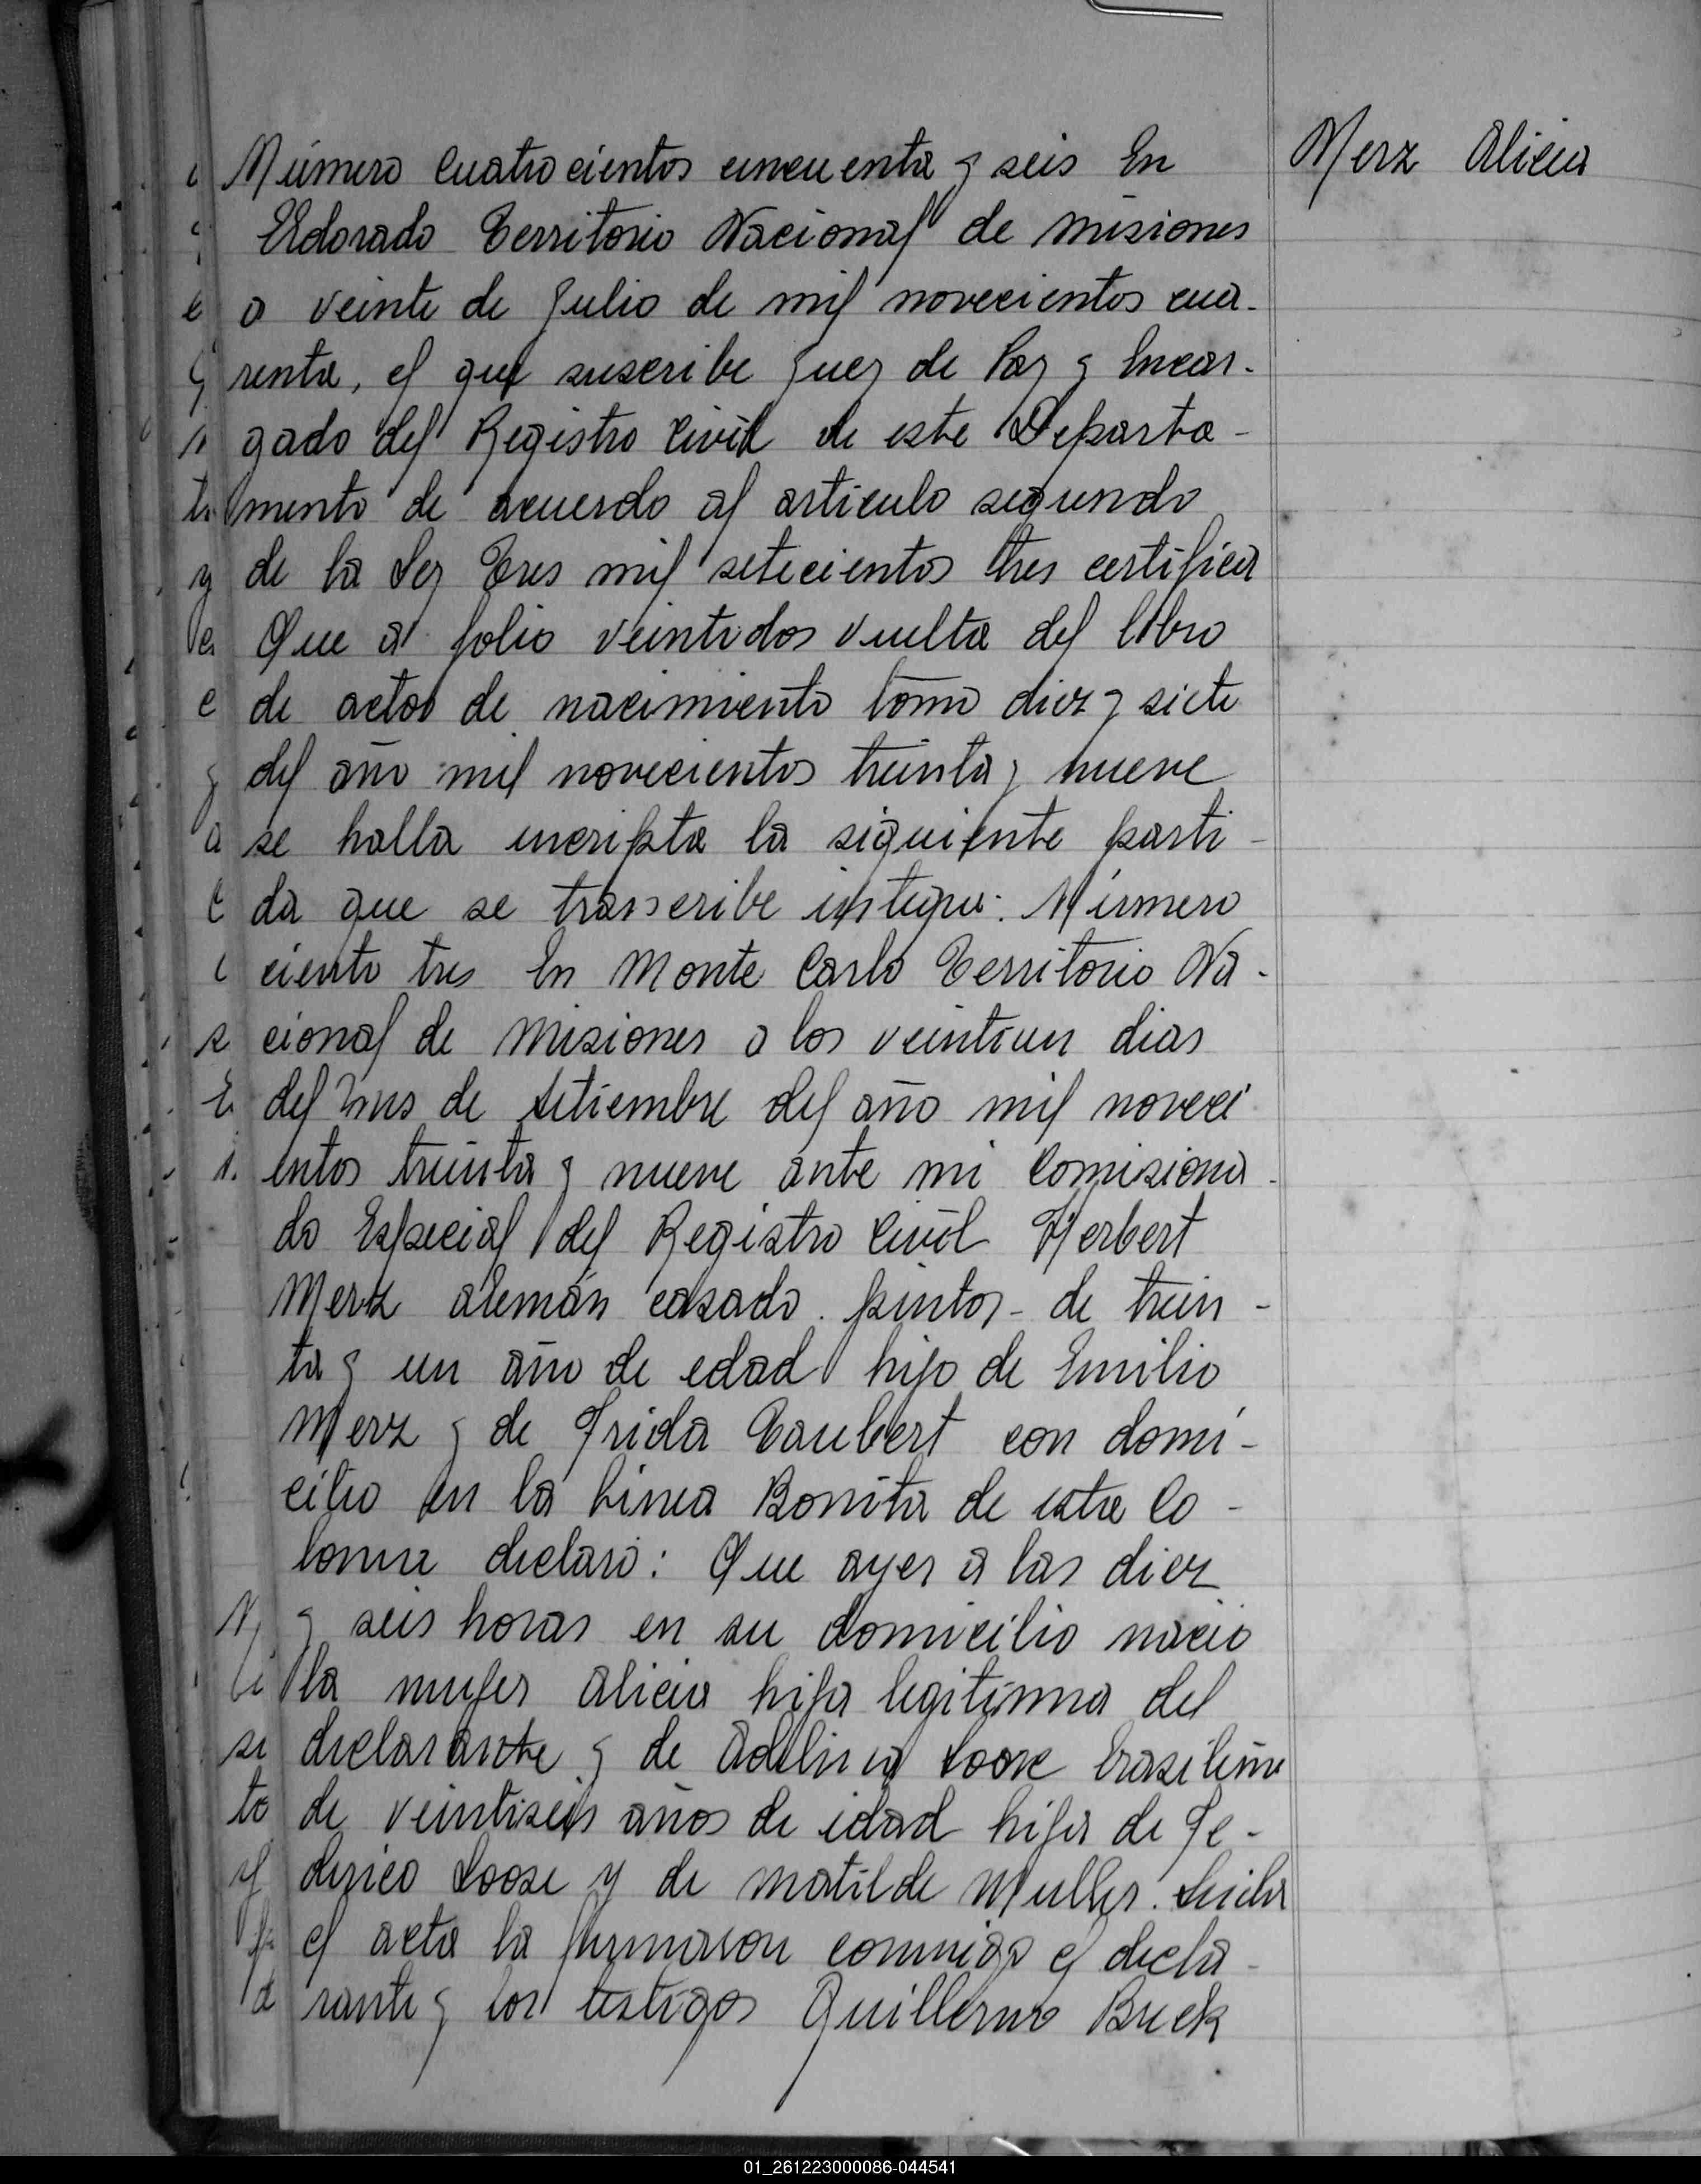 Número Cuatrocientos cincuenta y seis En
Merz Alicia
Eldorado Territorio Nacional de Misiones
a veinte de Julio de mil novecientos cua-
renta, el que suscribe Juez de Paz y Encar-
gado del Registro Civil de este Departa-
mento de acuerdo al articulo segundo
de la Ley Tres mil setecientos tres certifica
Que a folio veintidos vuelta del libro
de actas de nacimiento tomo diez y siete
del año mil novecientos treinta y nueve
se halla incripta la siguiente parti-
da que se transcribe integra: Número
ciento tres En Monte Carlo Territorio Na-
cional de Misiones a los veintiun dias
del mes de Setiembre del año mil noveci
entos treinta y nueve ante mi Comisiona-
do Especial del Registro Civil Herbert
Merz alemán casado pintor de trein-
ta y un año de edad hijo de Emilio
Merz y de Frida Taubert con domi-
cilio en la Linea Bonita de esta Co-
lonia declaró: Que ayer a las diez
y seis horas en su domicilio nació
la mujer Alicia hija legitima del
declarante y de Adelina Loose brasileña
de veintiseis años de edad hija de Fe-
derico Loose y de Matilde Muller. Leida
el acta la firmaron conmigo el decla-
rante y los testigos Guillermo Buck
01_261223000086-044541